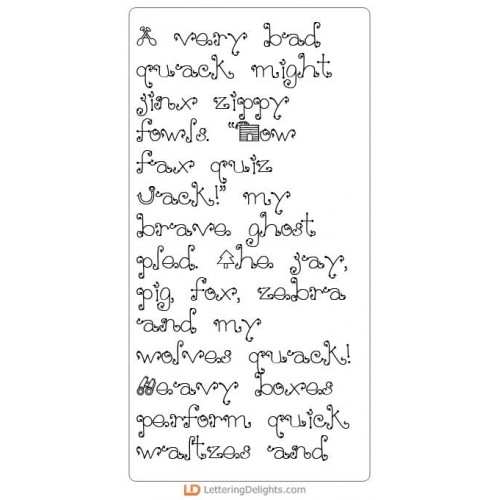 A very bad
quack might
jinx zippy
fowls. "Now
fax quiz
Jack!" my
brave ghost
pled. The jay,
pig, fox, zebra
and my
wolves quack!
Heavy boxes
perform quick
waltzes and
LD LetteringDelights.com